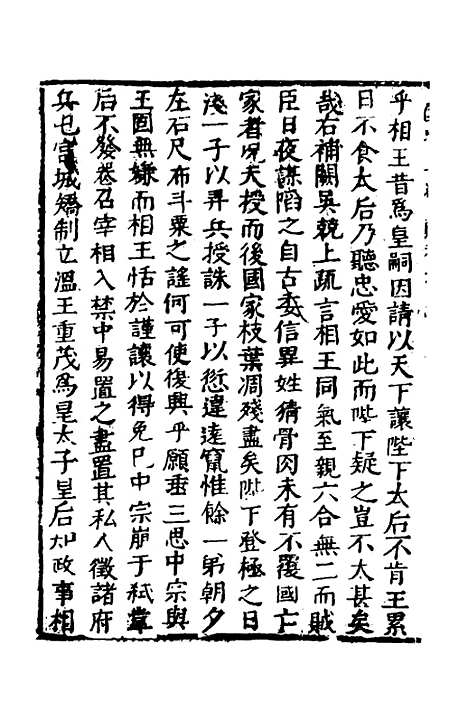 乎相王昔爲皇嗣因請以天下讓陛下太后不肯王累
日不食太后乃聽忠愛如此而陛下疑之豈不太甚矣
哉右補闕吳兢上疏言相王同氣至親六合無二而賊
臣日夜謀陷之自古委信異姓猜骨肉未有不覆國亡
家者况天授而後國家枝葉凋殘盡矣陛下登極之日
淺一子以弄兵授誅一子以愆違遠竄惟餘一弟朝夕
左右尺布斗粟之謠何可使復興乎願垂三思中宗與
王固無嫌而相王恬於謹讓以得免巳中宗崩于弒韋
后不發喪召宰相入禁中易置之盡置其私人徵諸府
兵屯宫城矯制立温王重茂爲皇太子皇后知政事相